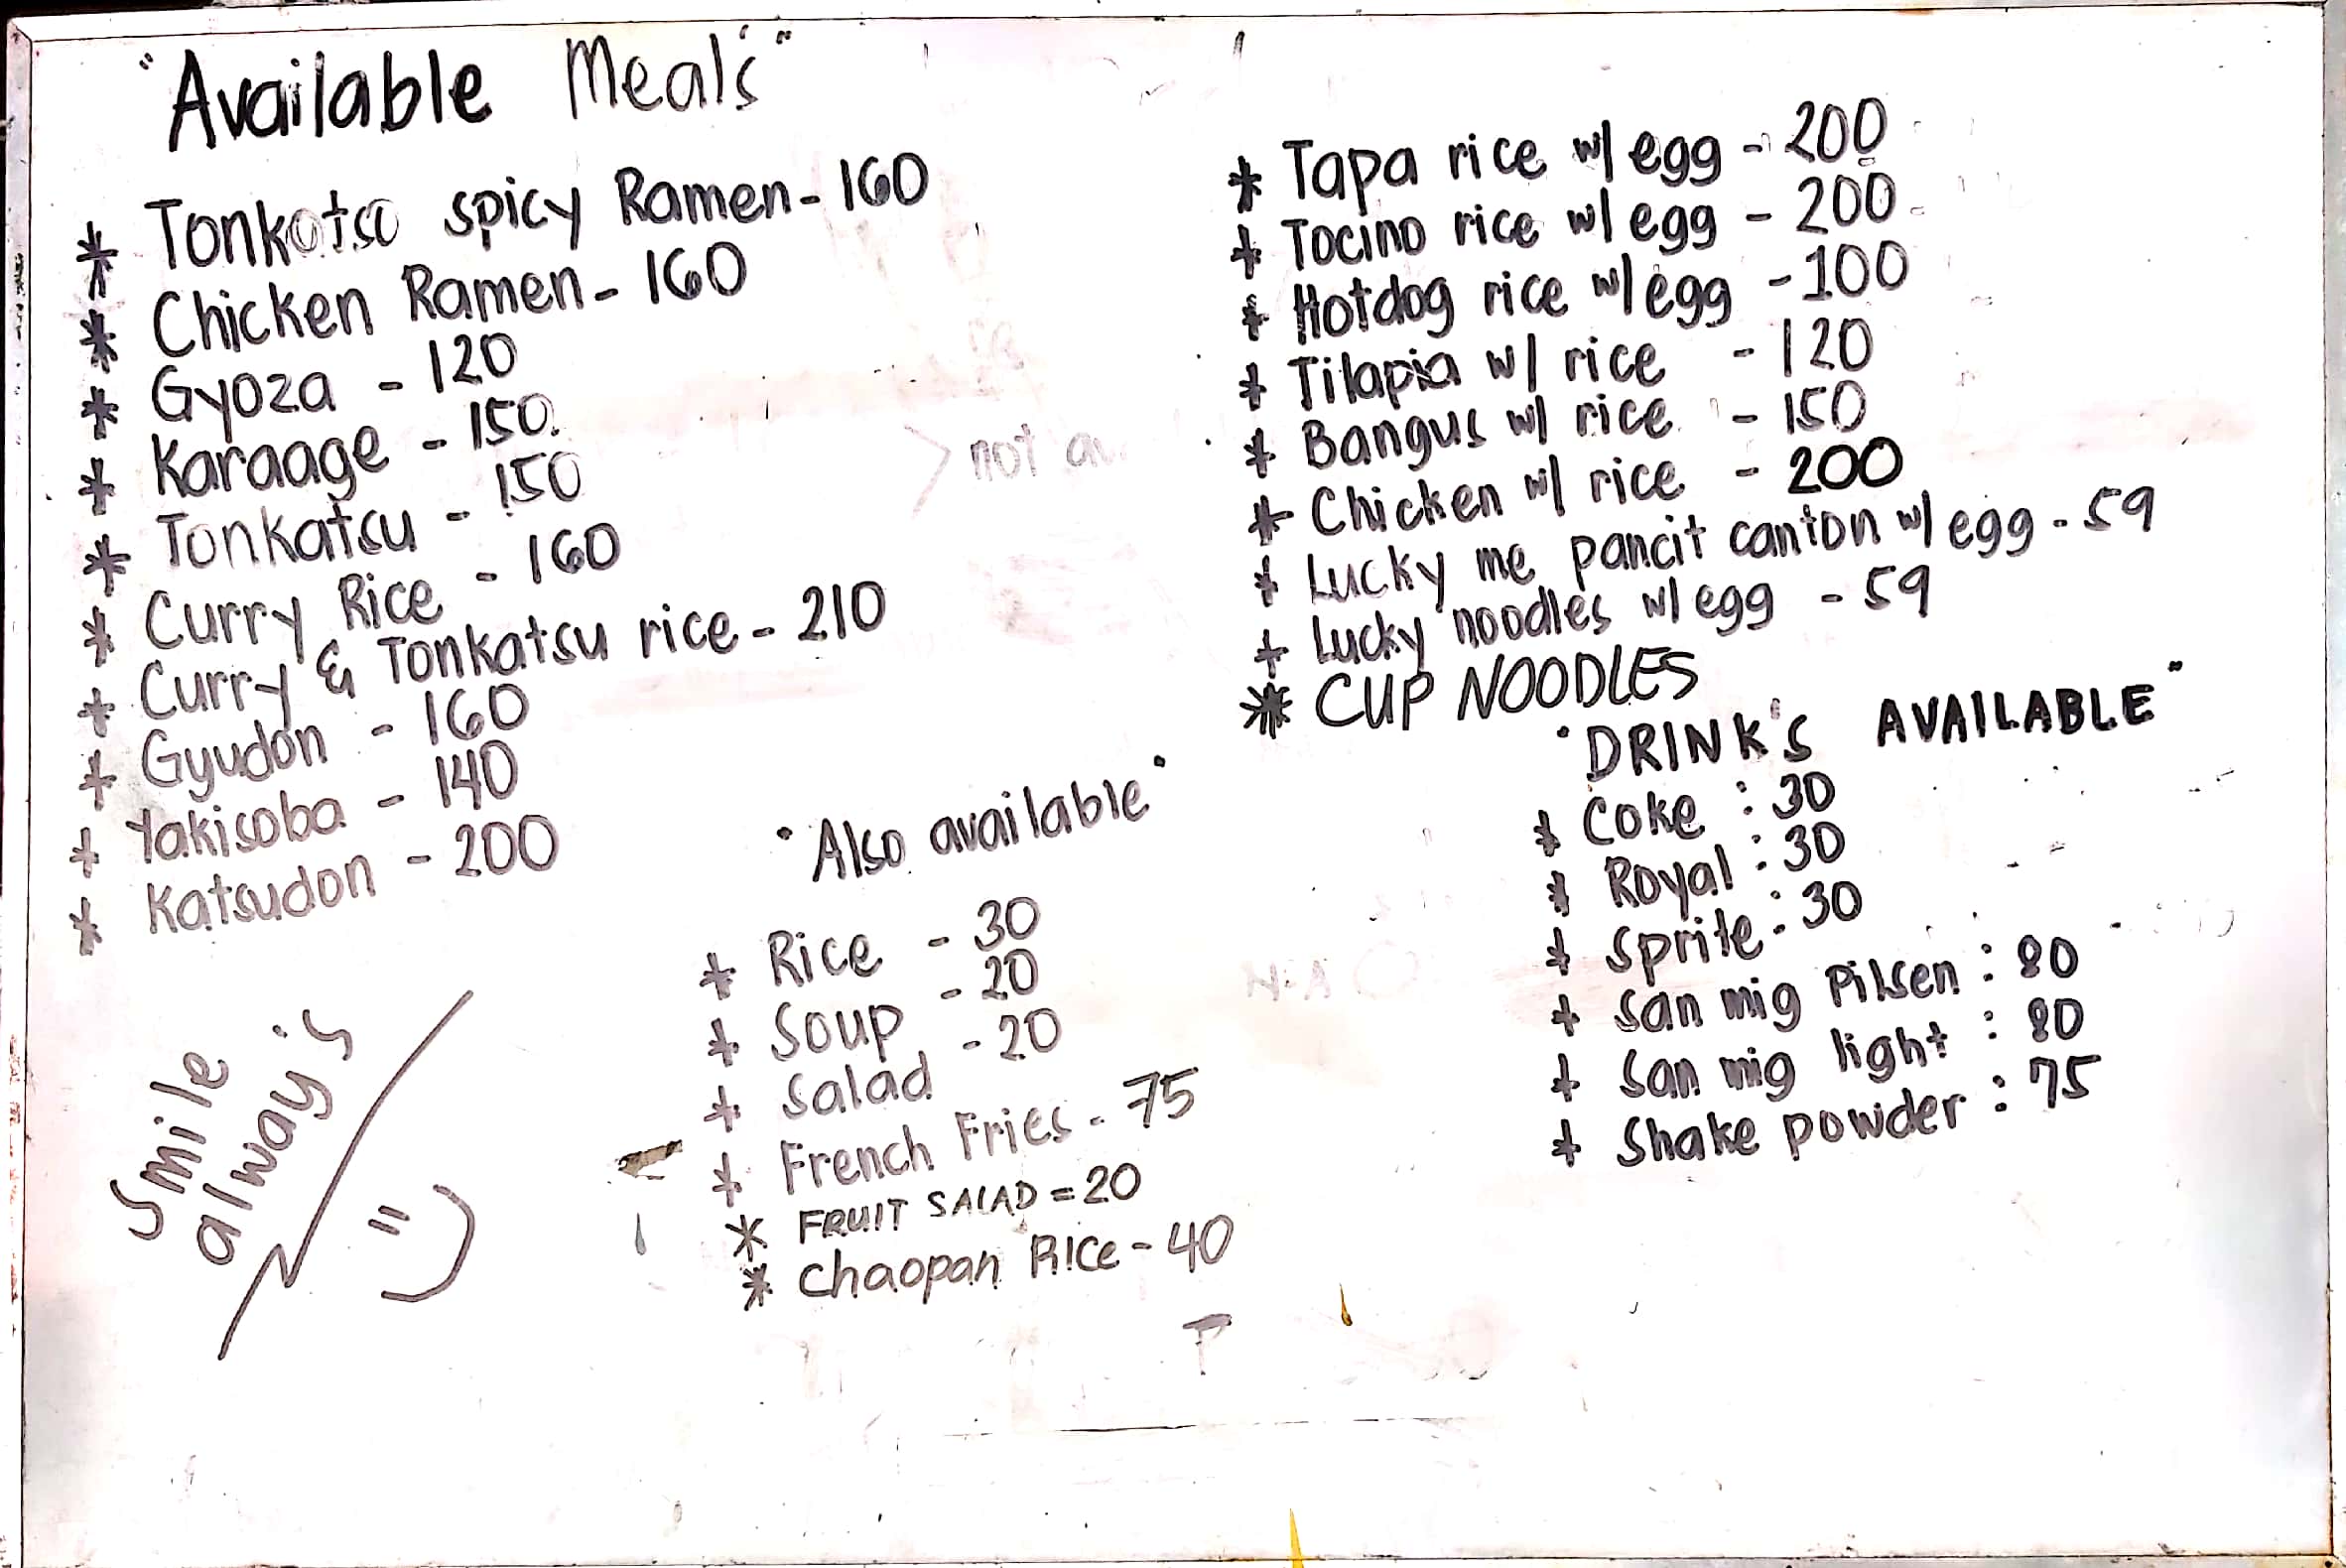 "Available Meal's"
* Tonkotso spicy Ramen - 160
* Chicken Ramen - 160
* Gyoza - 120
* Karaage - 150
* Tonkatsu - 150
* Curry Rice - 160
* Curry & Tonkatsu rice - 210
* Gyudon - 160
* Yakisoba - 140
* Katsudon - 200
> not
smile
always
"Also available"
* Rice - 30
* Soup - 20
* Salad - 20
* French Fries - 75
* FRUIT SALAD = 20
* chaopan Rice - 40
* Tapa rice w/ egg - 200
* Tocino rice w/ egg - 200
* Hotdog rice w/ egg - 100
* Tilapia w/ rice - 120
* Bangus w/ rice - 150
* Chicken w/ rice - 200
* Lucky me pancit canton w/ egg - 59
* Lucky noodles w/ egg - 59
* CUP NOODLES
"DRINK'S AVAILABLE"
* Coke : 30
* Royal : 30
* Sprite : 30
* San mig Pilsen : 80
* San mig light : 80
* Shake powder : 75